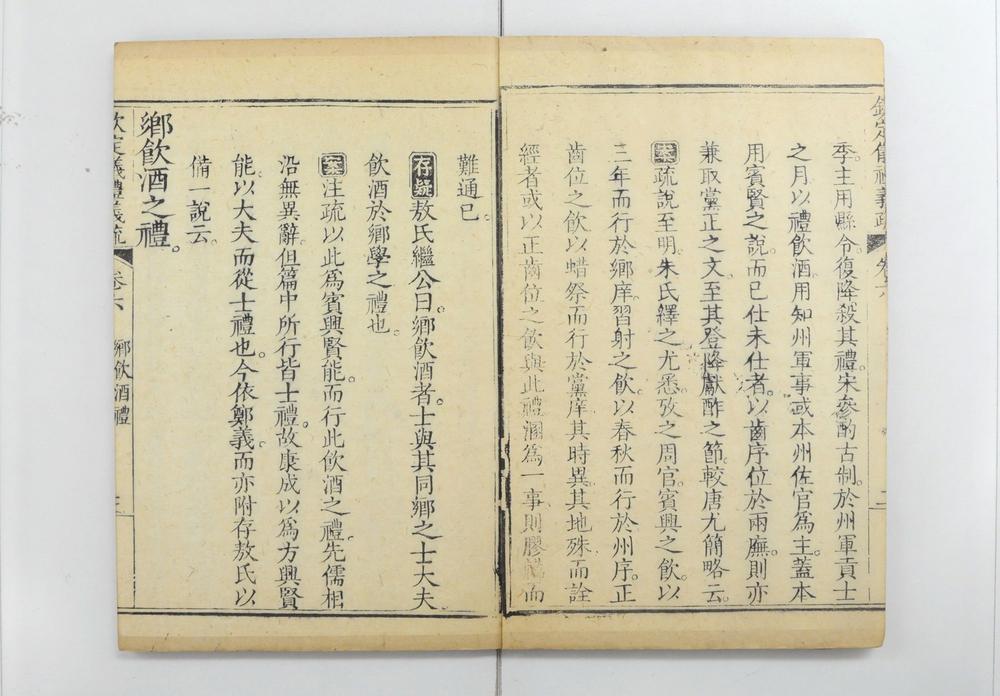 欽定儀禮義疏 卷六 二
季。主用縣令。復降殺其禮。宋參酌古制。於州軍貢士
之月以禮飲酒。用知州軍事或本州佐官爲主。蓋本
用賓賢之說。而已仕未仕者。以齒序位於兩廡。則亦
兼取黨正之文。至其登降獻酢之節。較唐尤簡略云。
案疏說至明。朱氏繹之尤悉。攷之周官賓興之飲。以
三年而行於鄉庠。習射之飲。以春秋而行於州序。正
齒位之飲。以蜡祭而行於黨庠。其時異。其地殊。而詮
經者或以正齒位之飲與此禮溷爲一事。則膠而
難通已。
存疑敖氏繼公曰。鄉飲酒者。士與其同鄉之士大夫
飲酒於鄉學之禮也。
案注疏以此爲賓興賢能。而行此飲酒之禮。先儒相
沿無異辭。但篇中所行皆士禮。故康成以爲方興賢
能。以大夫而從士禮也。今依鄭義。而亦附存敖氏以
備一說云。
鄉飲酒之禮。
欽定儀禮義疏 卷六 鄉飲酒禮 三